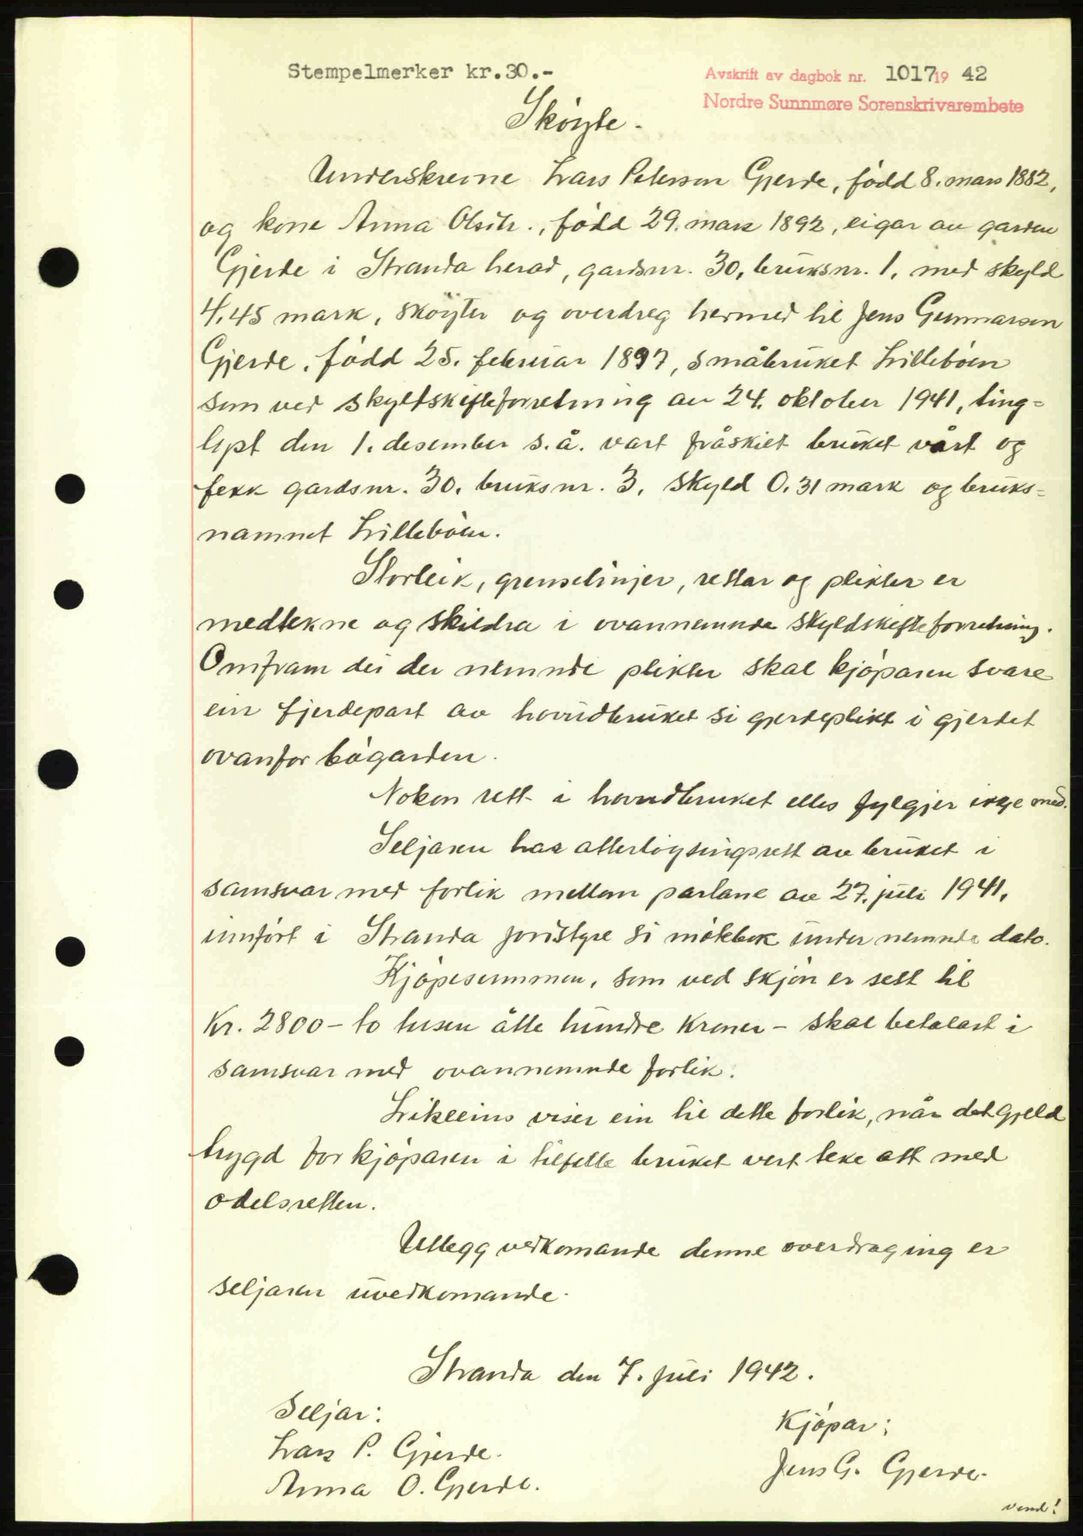 Stempelmerker kr.30.-
Avskrift av dagbok nr. 1017 19 42
Nordre Sunnmøre Sorenskrivarembete
Sköyte.
Underskrevne Lars Peterson Gjerde, född 8. mars 1882,
og kone Anna Olsdtr., född 29. mars 1892, eigar av garden
Gjerde i Stranda herad, gardsnr. 30, bruksnr. 1, med skyld
4,45 mark, sköyter og overdreg hermed til Jens Gunnarson
Gjerde, född 25. februar 1897, småbruket Lilleböen
som ved skyldskifteforretning av 24. oktober 1941, ting=
lyst den 1. desember s.å. vart fråskilt bruket vårt og
fekk gardsnr. 30, bruksnr. 3, skyld 0,31 mark og bruks=
namnet Lilleböen.
Storleik, grenselinjer, rettar og plikter er
medtekne og skildra i ovannemnde skyldskifteforretning.
Omfram dei der nemnde plikter skal kjöparen svare
ein fjerdepart av hovudbruket si gjerdeplikt i gjerdet
ovanfor bögarden.
Nokon rett i hovudbruket elles fylgjer ikkje med.
Seljaren har atterlöysingsrett av bruket i
samsvar med forlik mellom partane av 27. juli 1941,
innfört i Stranda jordstyre si mötebok under nemnde dato.
Kjöpesummen, som ved skjön er sett til
Kr. 2800 - to tusen åtte hundre kroner - skal betalast i
samsvar med ovannemnde forlik.
Likeeins viser ein til dette forlik, når det gjeld
trygd for kjöparen i tilfelle bruket vert teke att med
odelsretten.
Utlegg vedkomande denne overdraging er
seljaren uvedkomande.
Stranda den 7. juli 1942.
Seljar:
Kjöpar:
Lars P. Gjerde.
Jens G. Gjerde.
Anna O. Gjerde.
vend!